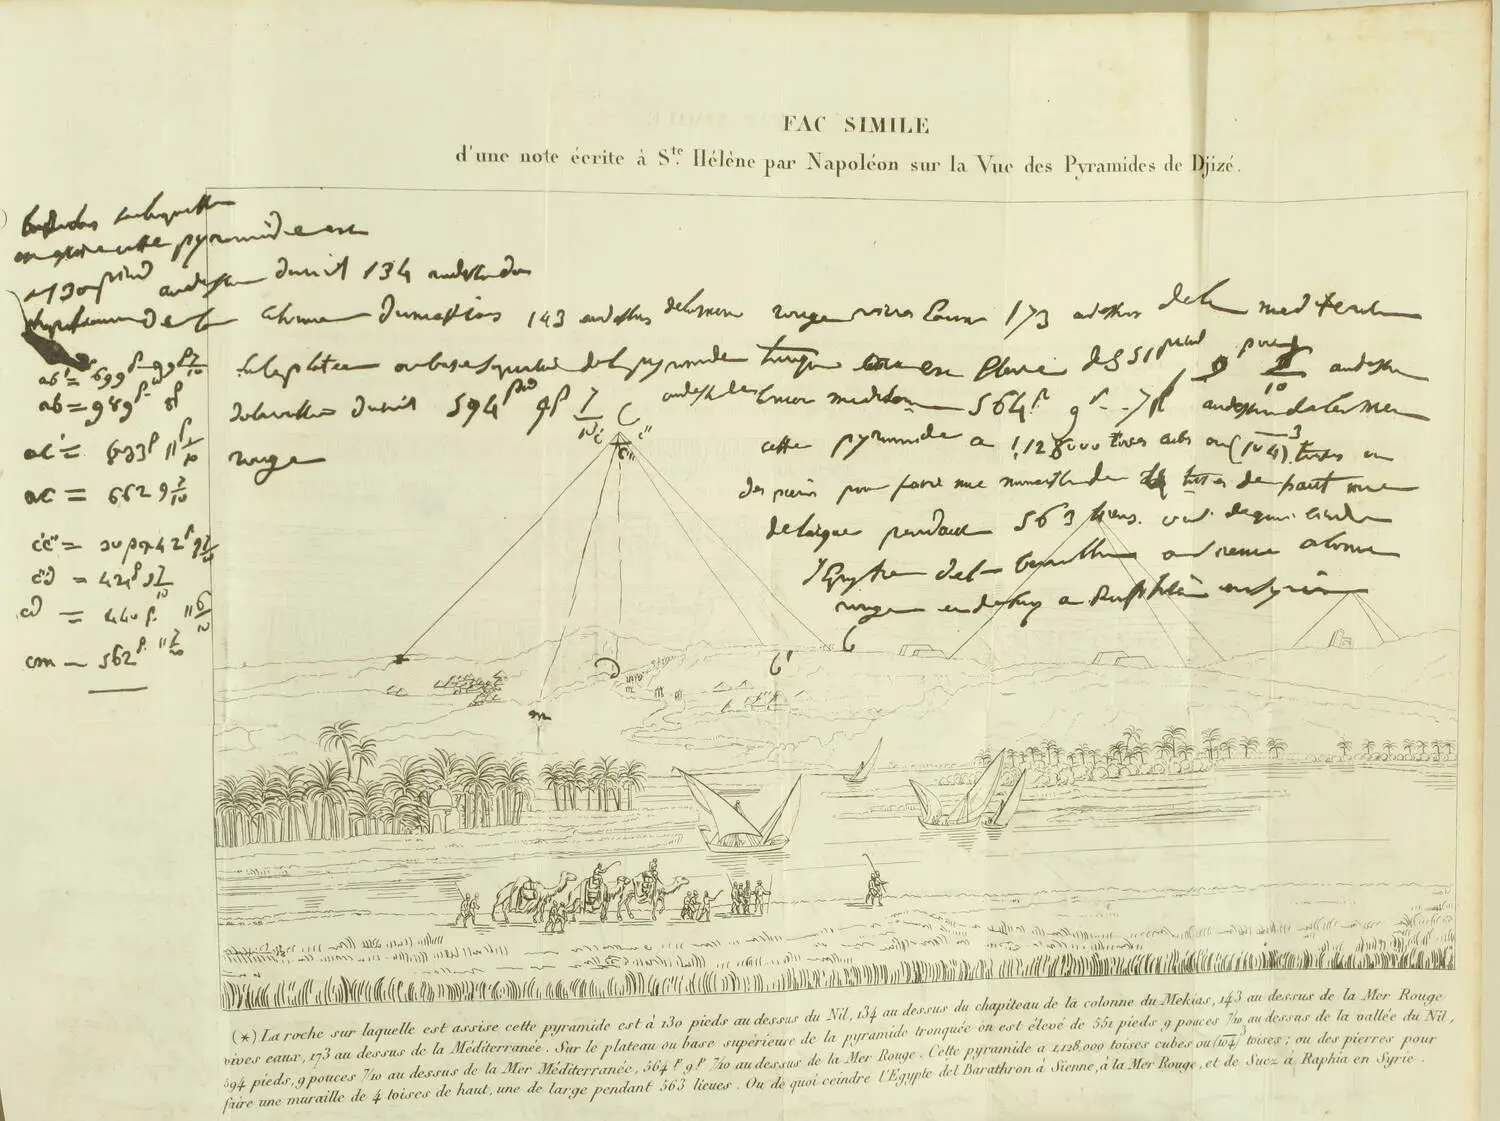 FAC SIMILE
d'une note écrite à S.te Hélène par Napoléon sur la Vue des Pyramides de Djizé.
cette pyramide est
130 pieds au dessus du nil 134 au dessus du
de la colonne du mekias 143 au dessus de la mer rouge vives eaux 173 au dessus de la mediterranée
sur le plateau ou base superieure de la pyramide tronquée on est elevé de 551 pieds 9 pouces 7/10 au dessus
de la vallée du nil 594 pieds 9p 7/10 au dessus de la mer mediterranée 564 p 9 p 7/10 au dessus de la mer
rouge
cette pyramide a 1,128,000 toises cubes ou (104)3 toises ou
des pierres pour faire une muraille de 4 toises de haut une
de large pendant 563 lieues ou de quoi ceindre
l'Egypte del barathron a sienne a la mer
rouge et de suez a Raphia en Syrie
ab' = 699 p 9 p 7/10
ab = 989 p 8p
ac' = 11 p 7/10
ac = 662 9 7/10
c'c" = 42 p 9 7/10
c'd = 421 p 9 7/10
cd = 440 p. 11 6/10
cm = 562 p 11 7/10
C
c'
c"
D
m
b'
b
(*) La roche sur laquelle est assise cette pyramide est à 130 pieds au dessus du Nil, 134 au dessus du chapiteau de la colonne du Mekias, 143 au dessus de la Mer Rouge
vives eaux, 173 au dessus de la Méditerranée. Sur le plateau ou base supérieure de la pyramide tronquée on est élevé de 551 pieds, 9 pouces 7/10 au dessus de la vallée du Nil,
594 pieds, 9 pouces 7/10 au dessus de la Mer Méditerranée, 564 p 9 p 7/10 au dessus de la Mer Rouge. Cette pyramide a 1,128,000 toises cubes ou (104)3 toises; ou des pierres pour
faire une muraille de 4 toises de haut, une de large pendant 563 lieues. Ou de quoi ceindre l'Egypte del Barathron à Sienne, à la Mer Rouge, et de Suez à Raphia en Syrie.